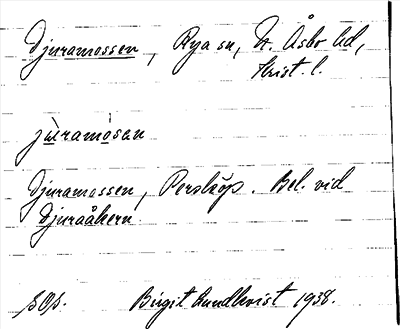 Djuramossen, Rya sn, N. Åsbo hd,
Krist. l.
jùramósen
Djuramossen, Perstorp. Bel. vid
Djuraåkern.
SOS. Birgit Lundkvist 1938.